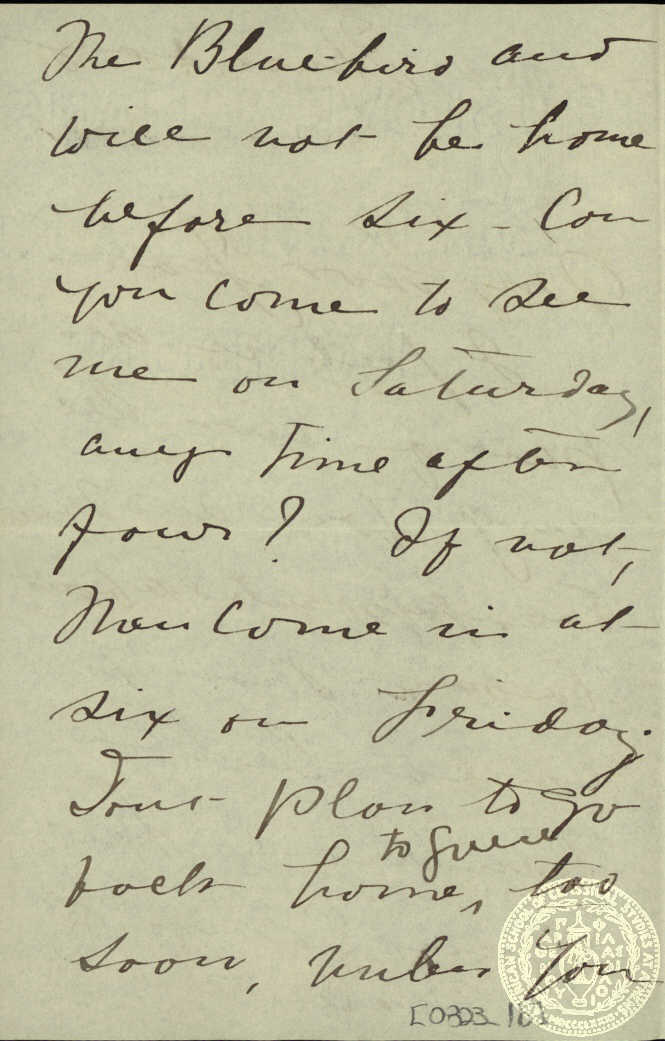 The Bluebird and
will not be home
before six - Can
you come to see
me on Saturday,
any time after
four? If not,
Then come in at
six on Friday.
Don't plan to go
to
back home, too
soon, unless you
AMERICAN SCHOOL OF CLASSICAL STUDIES AT ATHENS
[0323_10]